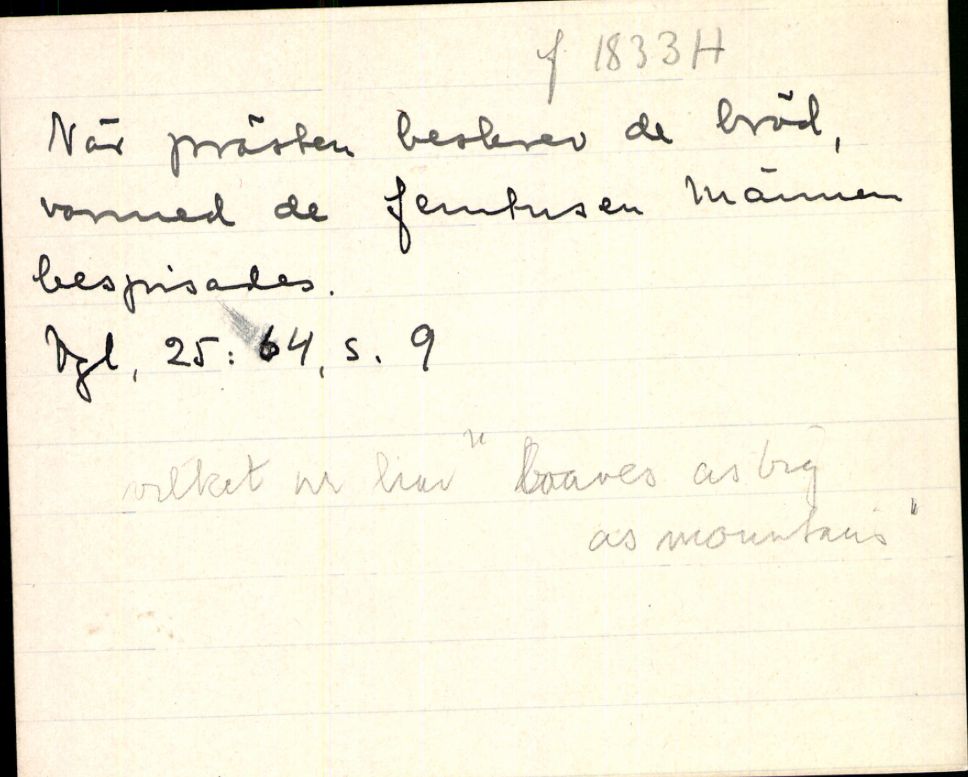 f 1833H
När prästen beskrev de bröd,
varmed de femtusen männen
bespisades.
Vgl, 25: 64, s. 9
vilket ur "loaves as big
as mountains"